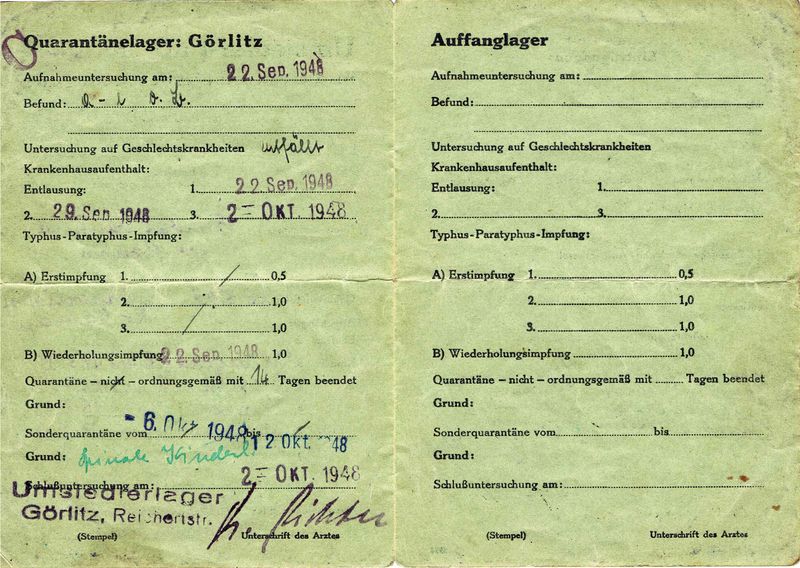 Quarantänelager: Görlitz
Aufnahmeuntersuchung am: 22. Sep. 1948
Befund: a-l o. B.
Untersuchung auf Geschlechtskrankheiten entfällt
Krankenhausaufenthalt:
Entlausung: 1. 22 Sep. 1948
2. 29. Sep. 1948 3. 2- OKT. 1948
Typhus-Paratyphus-Impfung:
A) Erstimpfung 1. / 0,5
2. / 1,0
3. / 1,0
B) Wiederholungsimpfung 22. Sep. 1948 1,0
Quarantäne – nicht – ordnungsgemäß mit 14 Tagen beendet
Grund:
Sonderquarantäne vom - 6. Okt. 1948 bis 12 Okt. 1948
Grund: Spinale Kinderl
Schlußuntersuchung am: 2- OKT. 1948
Umsiedlerlager
Görlitz, Reichertstr.
Richter
(Stempel) Unterschrift des Arztes
Auffanglager
Aufnahmeuntersuchung am:
Befund:
Untersuchung auf Geschlechtskrankheiten
Krankenhausaufenthalt:
Entlausung: 1.
2. 3.
Typhus-Paratyphus-Impfung:
A) Erstimpfung 1. 0,5
2. 1,0
3. 1,0
B) Wiederholungsimpfung 1,0
Quarantäne – nicht – ordnungsgemäß mit Tagen beendet
Grund:
Sonderquarantäne vom bis
Grund:
Schlußuntersuchung am:
(Stempel) Unterschrift des Arztes